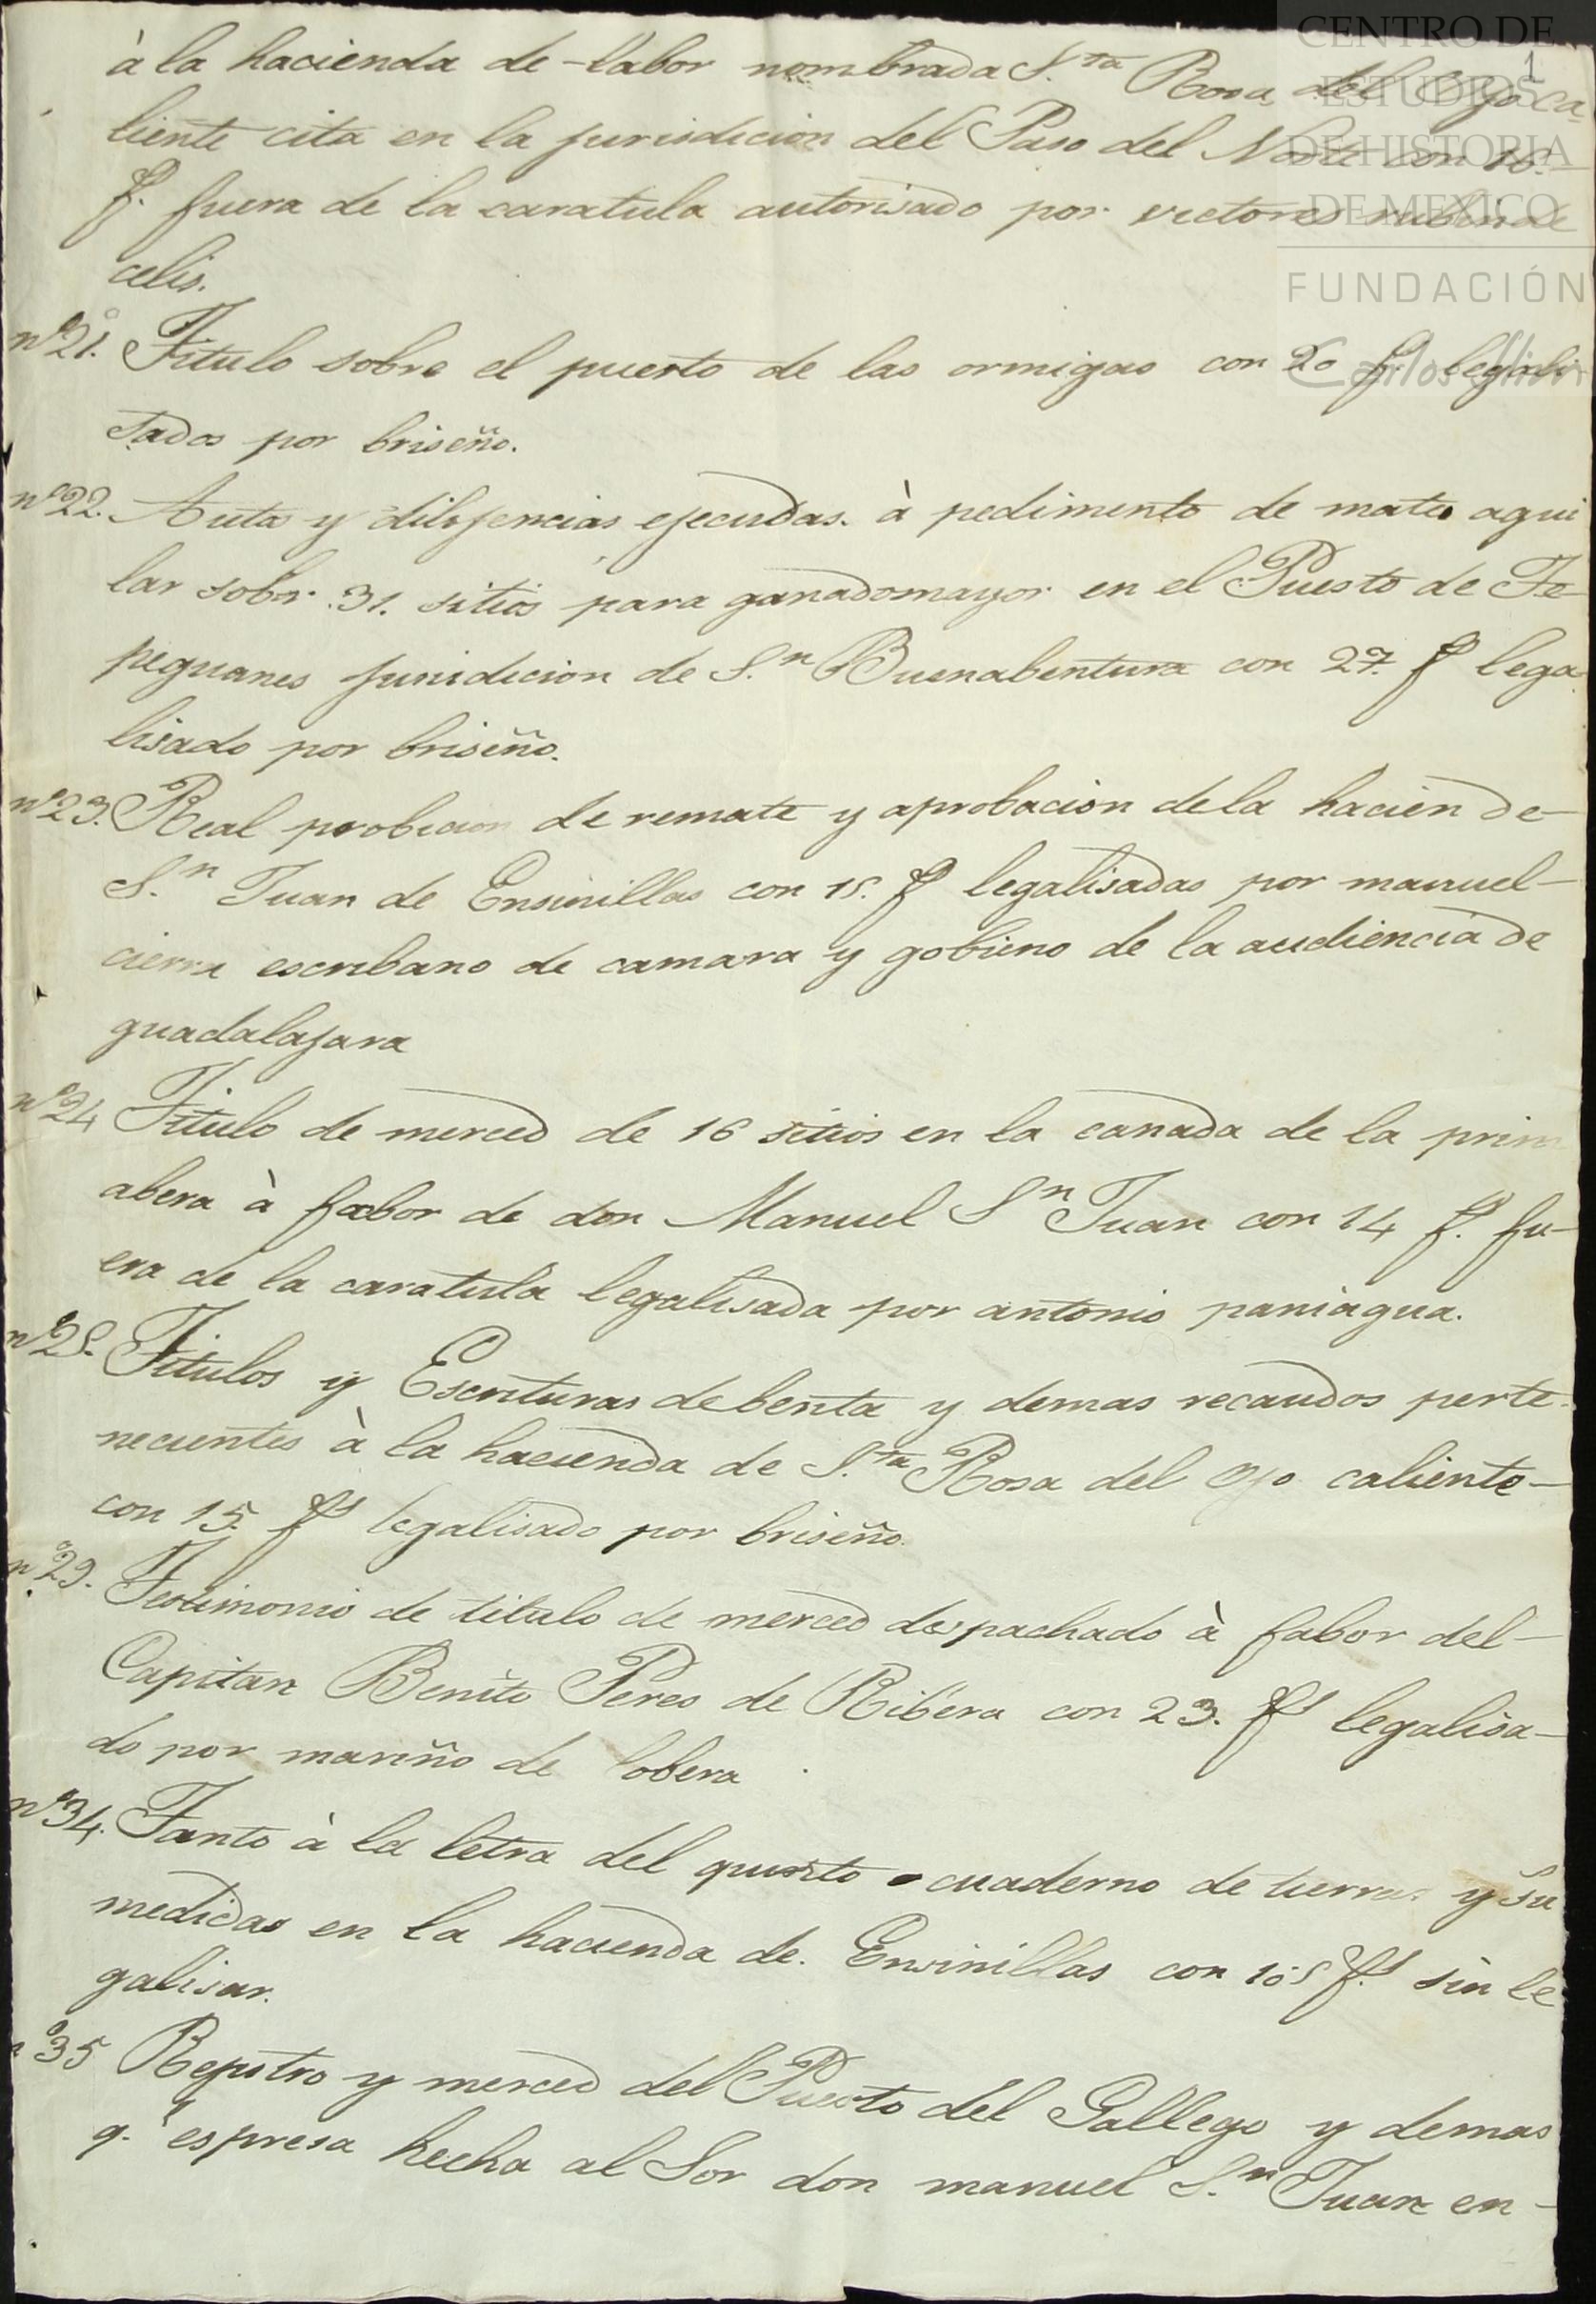 CENTRO DE
ESTUDIOS
DE HISTORIA
DE MEXICO
FUNDACIÓN
Carlos Slim
1
à la hacienda de labor nombrada S.ta Rosa del Ojo ca-
liente cita en la jurisdicion del Paso del Norte con 16.
f. fuera de la caratula autorisado por victores rubin de
celis.
nº 21. Titulo sobre el puesto de las ormigas con 20 f. legali
sados por briseño.
nº 22. Auto y dilijencias ejecudas. à pedimento de mateo agui
lar sobr. 31. sitios para ganado mayor en el Puesto de Te-
peguanes jurisdicion de S.n Buenabentura con 27. f lega
lisado por briseño.
nº 23. Real probicion de remate y aprobacion de la hacien de-
S.n Juan de Ensinillas con 15. f legalisadas por manuel-
cierra escribano de camara y gobieno de la audiencia de
guadalajara
nº 24 Titulo de merced de 16 sitios en la canada de la prim
abera à fabor de don Manuel S.n Juan con 14 f. fu-
era de la caratula legalisada por antonio paniagua.
nº 25. Titulos y Escrituras de benta y demas recaudos perte-
necientes à la hacienda de S.ta Rosa del Ojo caliente-
con 15. fs legalisado por briseño.
nº 29. Testimonio de titulo de merced despachado à fabor del-
Capitan Benito Peres de Ribera con 23. fs legalisa-
do por mariño de lobera
nº 34. Tanto à la letra del quinto cuaderno de tierras y su
medidas en la hacienda de. Ensinillas con 105 f.s sin le
galisar.
nº 35 Rejistro y merced del Puesto del Gallego y demas
q.e espresa hecha al Sor don manuel S.n Juan en-